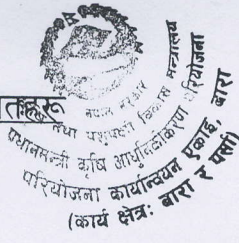 तहरू
नेपाल सरकार
तथा पशुपन्छी विकास मन्त्रालय
प्रधानमन्त्री कृषि आधुनिकीकरण परियोजना
परियोजना कार्यान्वयन एकाइ, बारा
(कार्य क्षेत्र: बारा र पर्सा)